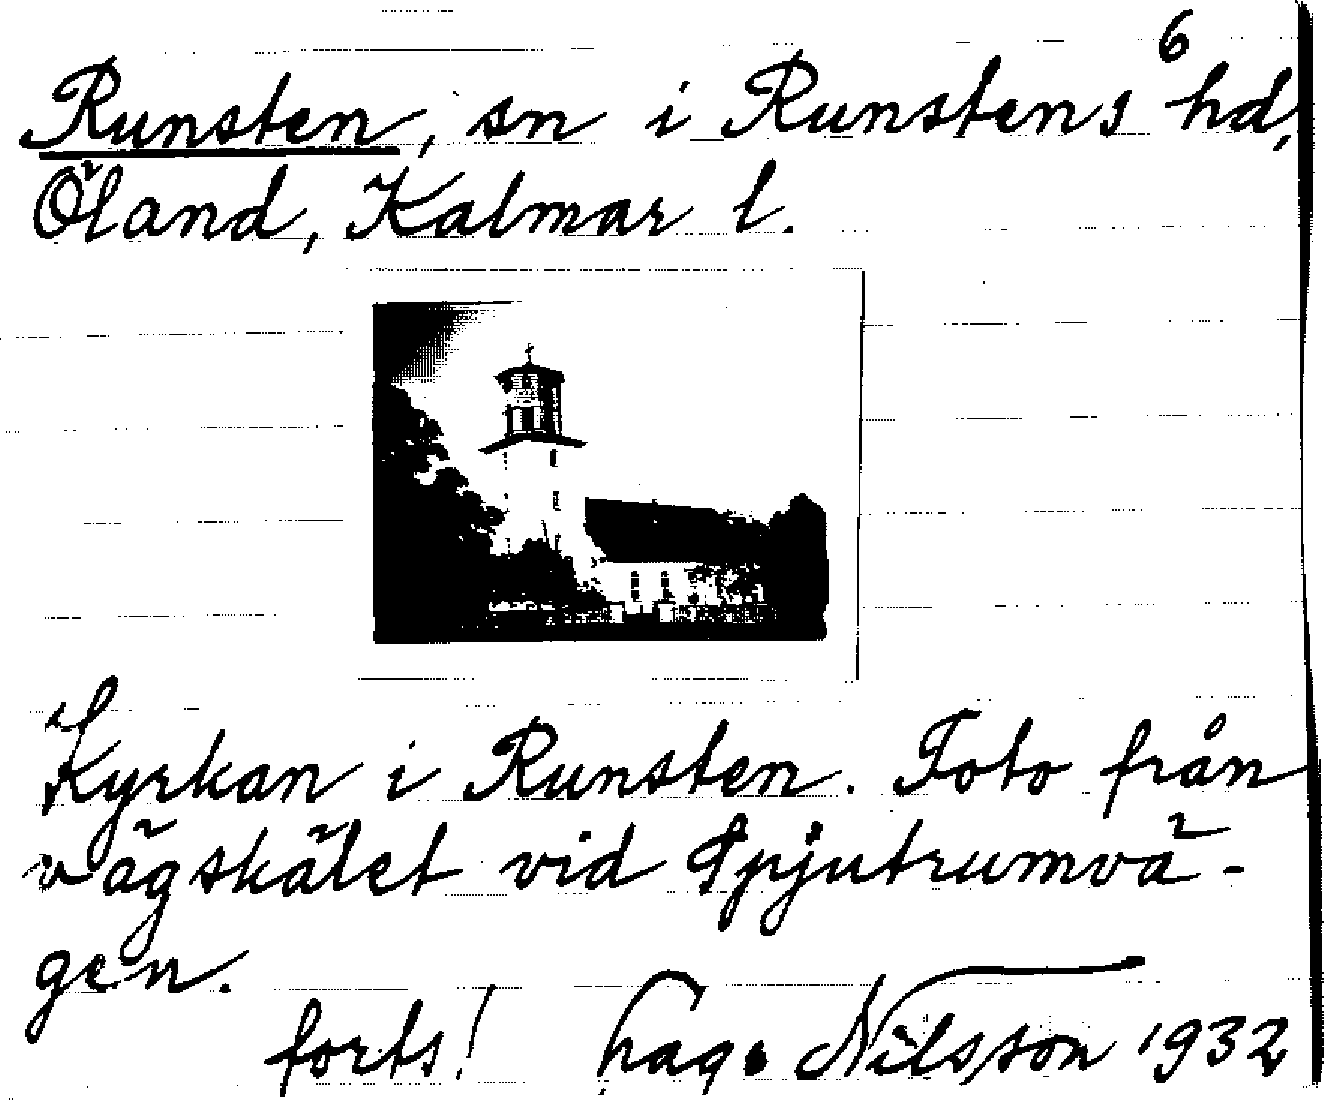 6
Runsten, sn i Runstens hd,
Öland, Kalmar l.
Kyrkan i Runsten. Foto från
vägskälet vid Spjutrumvä-
gen.
forts! Nilsson 1932